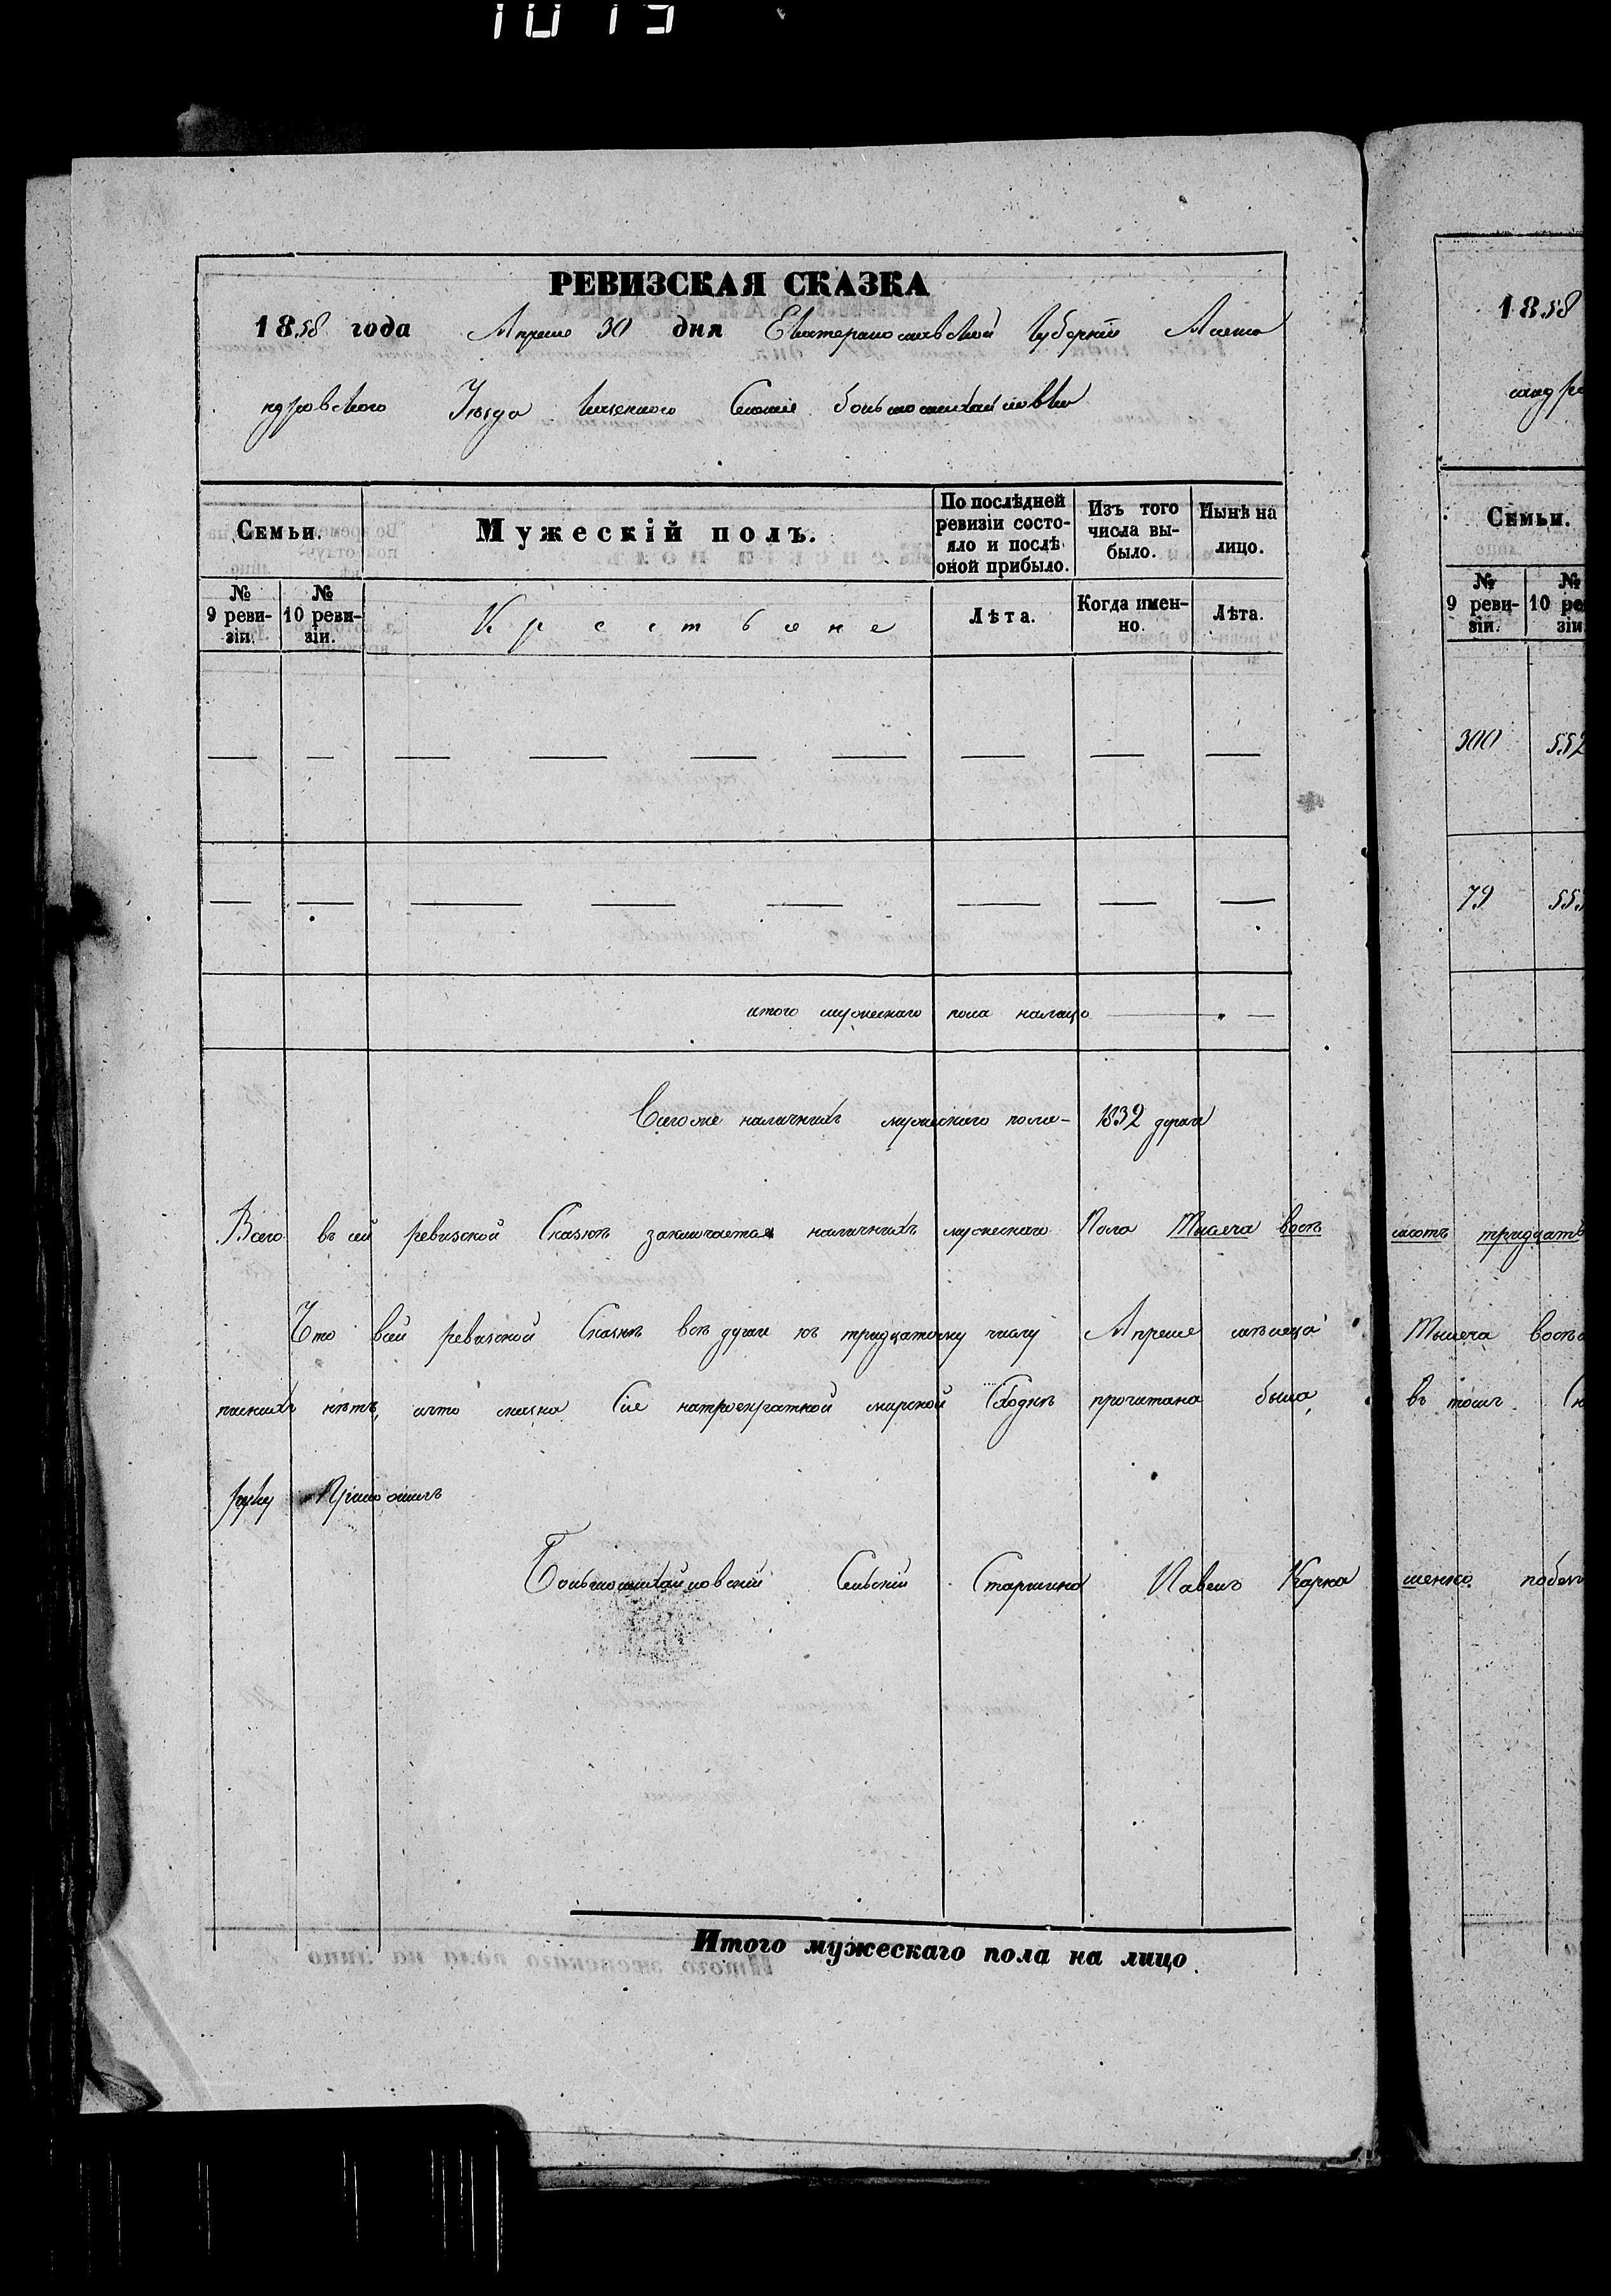 РЕВИЗСКАЯ СКАЗКА
1858 года Апреля 30 дня Екатеринославской Губернии Алекса
ндровского Уезда Казенного Селения Большомихайловки
Семьи.
Мужескій полъ.
По послѣдней ревизіи состо-
яло и послѣ оной прибыло.
Изъ того числа вы-
было.
Нынѣ на лицо.
№ 9 реви-
зіи.
№ 10 реви-
зіи.
Крестьяне
Лѣта.
Когда имен-
но.
Лѣта.
итого мужескаго пола налицо
Всего же наличныхъ мужескаго пола - 1832 души
Всего въ сей ревизской Сказкѣ заключается наличныхъ мужескаго Пола Тысяча восѣ
Что всей ревизской Сказкѣ всѣ души къ тридцатому числу Апреля мѣсяца
нѣтъ, ичто сказка Сия натроекратной мирской Сходкѣ прочитана была,
руку Приложилъ
Большомихайловский Сельский Старшина Павелъ Карна
Итого мужескаго пола на лицо.
1858
Семьи.
№ 9 реви-
зіи.
№ 10 ре
зіи
300 552
79 555
сотъ тридцать
Тысяча восѣ
въ томъ
шенко